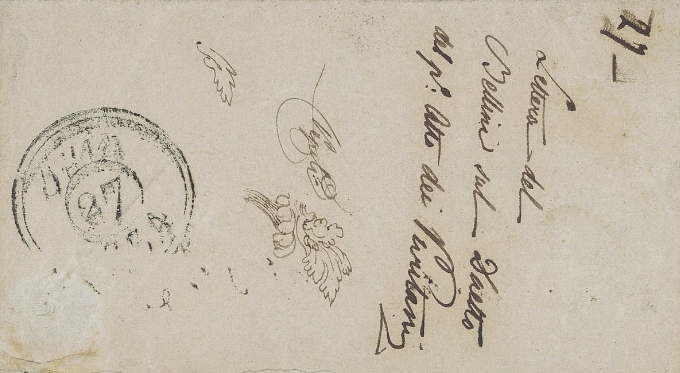 27
Lettera del
Bellini sul Duetto
del p.º Atto dei Puritani
27